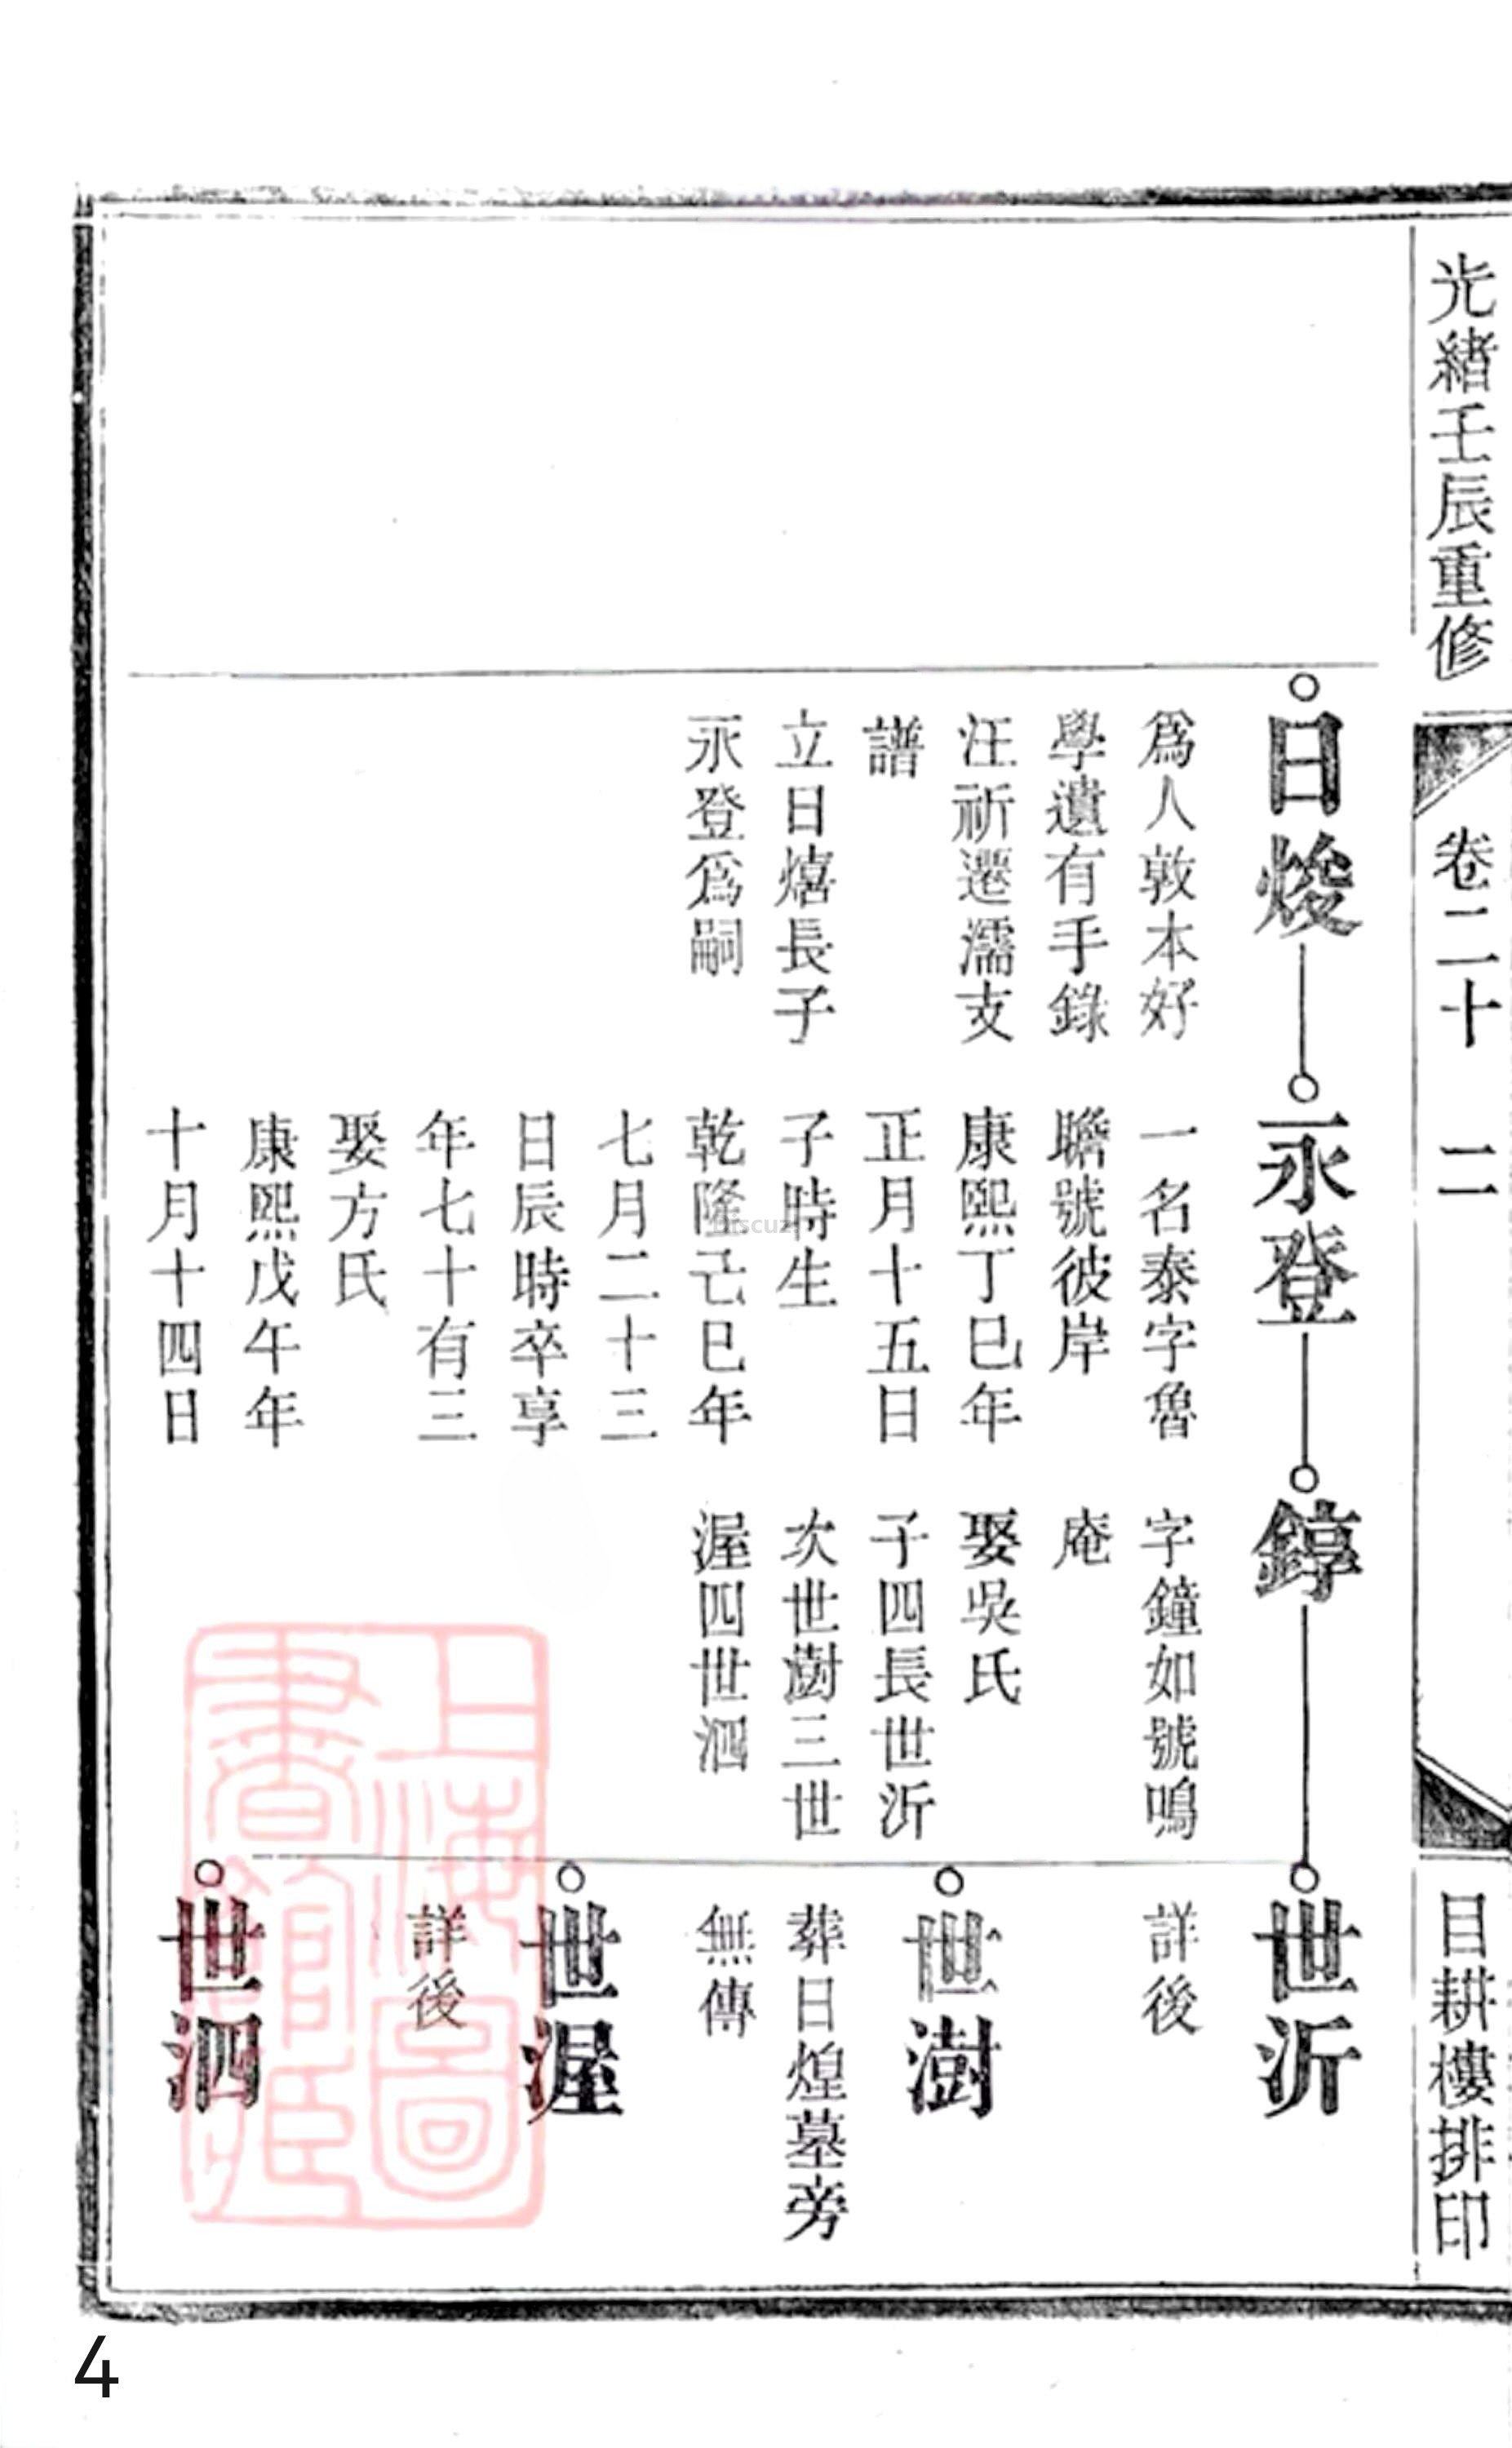 光緒壬辰重修
卷二十
二
目耕樓排印
日焌
爲人敦本好
學遺有手錄
汪祈遷濡支
譜
立日熺長子
永登爲嗣
永登
一名泰字魯
瞻號彼岸
康熙丁巳年
正月十五日
子時生
乾隆己巳年
七月二十三
日辰時卒享
年七十有三
娶方氏
康熙戊午年
十月十四日
錞
字鐘如號鳴
庵
娶吳氏
子四長世沂
次世澍三世
渥四世泗
世沂
詳後
世澍
葬日煌墓旁
無傳
世渥
詳後
世泗
上海圖
書館藏
4